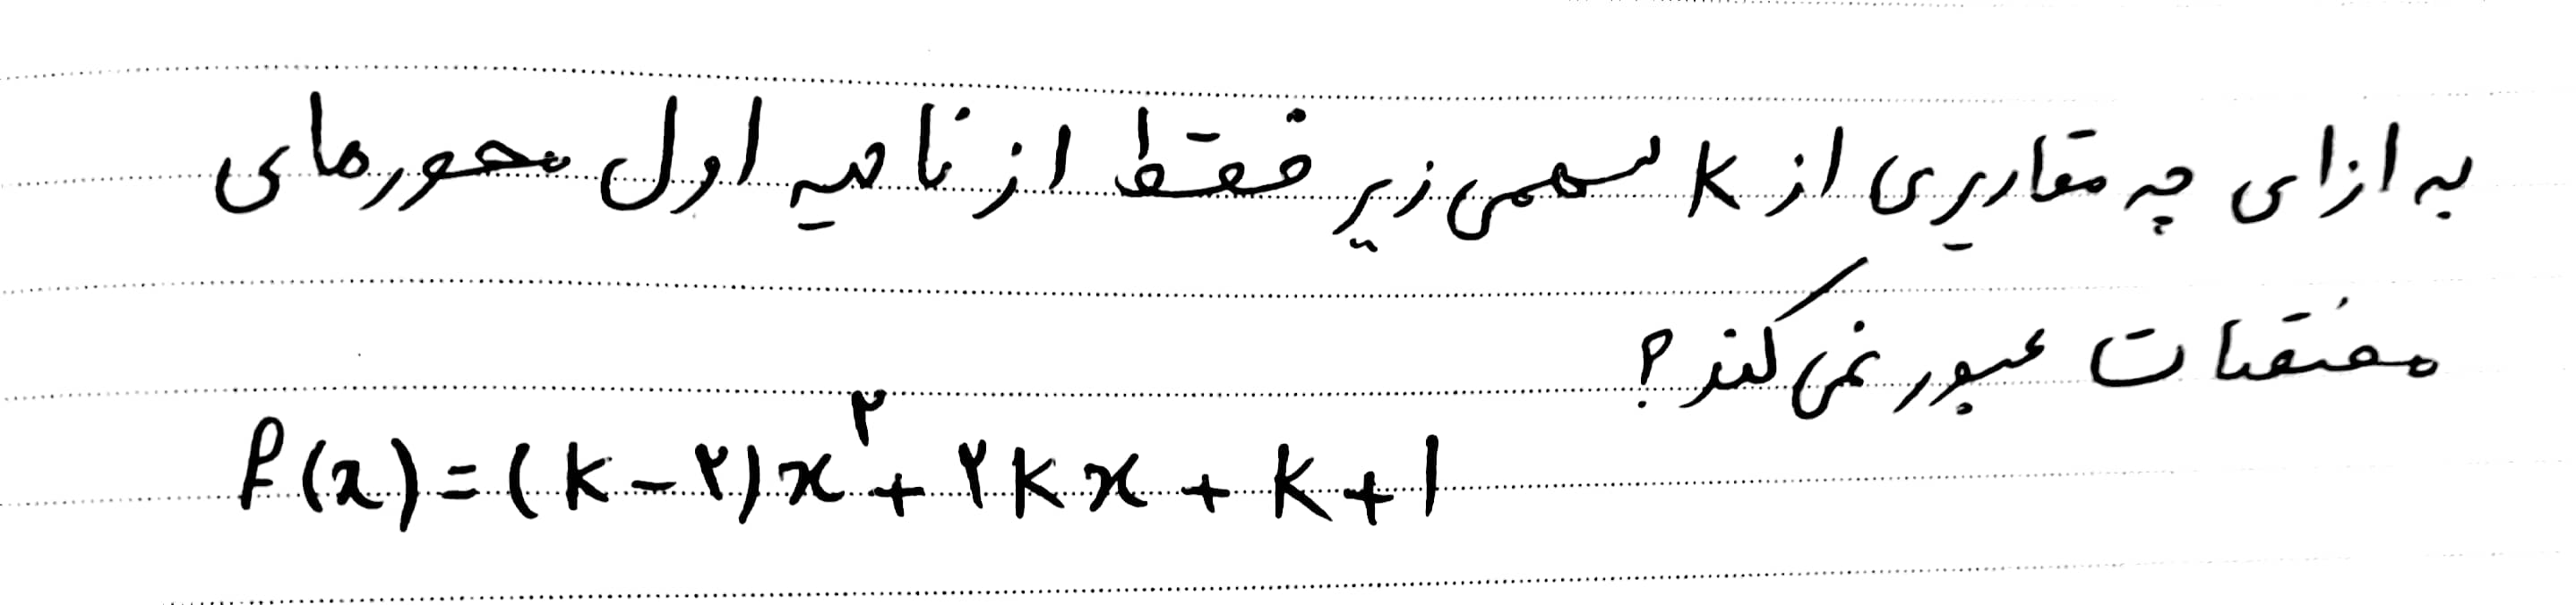 به ازای چه مقادیری از k سهمی زیر فقط از ناحیه اول محورهای
مختصات عبور نمی‌کند؟
f(x)=(k-۲)x^۲+۲kx+k+۱